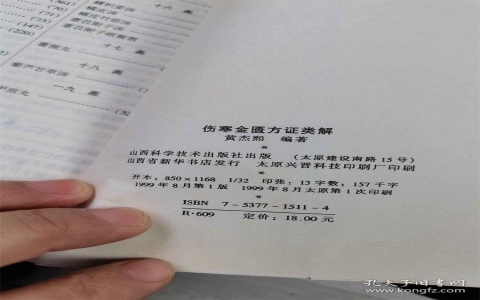 十六画
十七画
十八画
一九画
伤寒金匮方证类解
黄杰熙 编著
*
山西科学技术出版社出版 (太原建设南路15号)
山西省新华书店发行 太原兴晋科技印刷厂印刷
*
开本:850×1168 1/32 印张:13 字数:157千字
1999年8月第1版 1999年8月太原第1次印刷
*
ISBN 7-5377-1511-4
R·609 定价:18.00元
孔夫子旧书网
www.kongfz.com